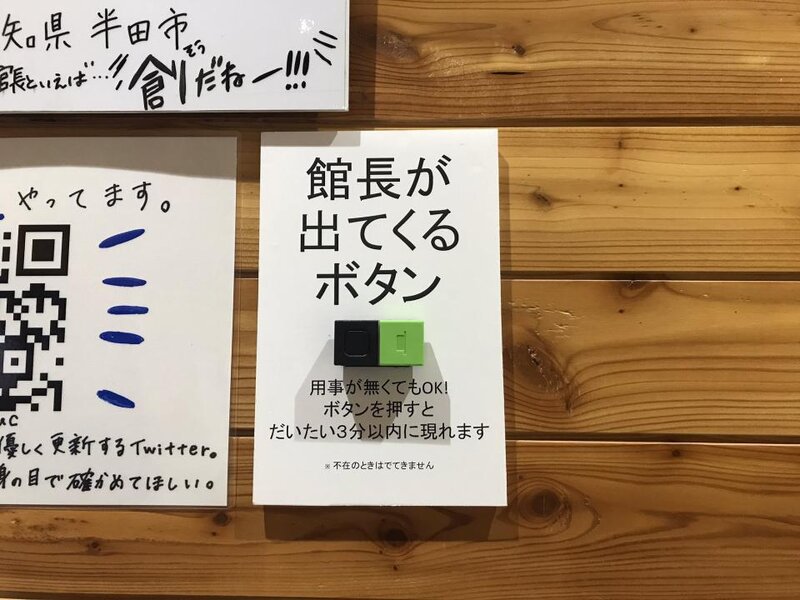 知県 半田市
館長といえば…
創だねー!!!
そう
やってます。
館長が
出てくる
ボタン
用事が無くてもOK!
ボタンを押すと
だいたい3分以内に現れます
※ 不在のときはでてきません
優しく更新するTwitter。
身の目で確かめてほしい。